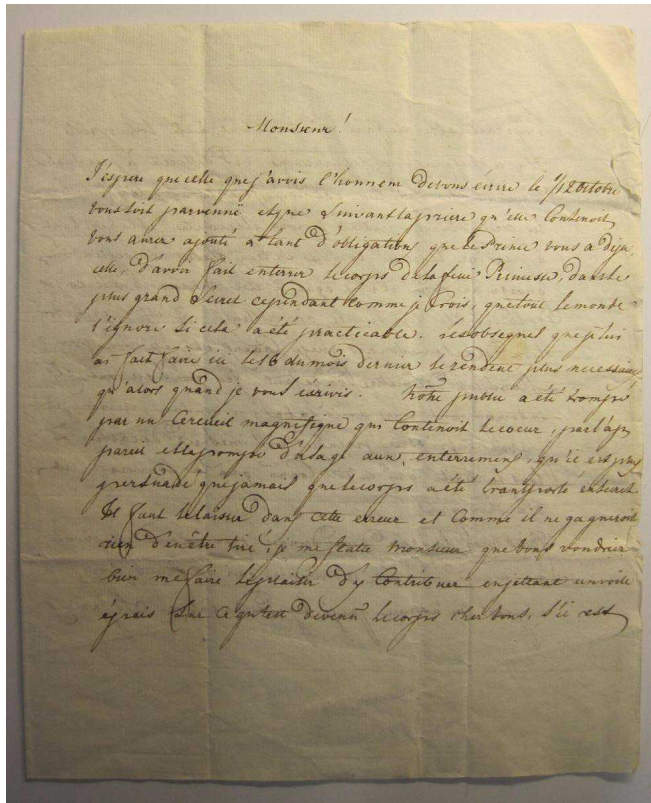 Monsieur!
J'espere que celle que j'avois l'honneur de vous écrire le 1/12 Octobre
vous soit parvenuë et que suivant la priere qu'elle contenoit
vous aurez ajouté a tant d'obligations que le Prince vous a deja,
celle, d'avoir fait enterrer le corps de la feuë Princesse, dans le
plus grand secret cependant comme je crois, que tout le monde
l'ignore si cela a été practicable. les obseques que je lui
ai fait faire ici le 16 du mois dernier le rendent plus necessaire,
qu'alors quand je vous écrivis. Nôtre public a été trompé
par un Cercueil magnifique qui contenoit le coeur, par l'ap
pareil et la pompe d'usage aux enterremens, qu'il est plus
persuadé que jamais que le corps a été transporté
Il faut le laisser dans cette erreur et comme il ne gagneroit
rien d'en être tiré, je me flatte Monsieur que vous voudriez
bien me faire le plaisir d'y contribuer en jettant un voile
épais sur ce qu'est devenu le corps chez vous, s'il est